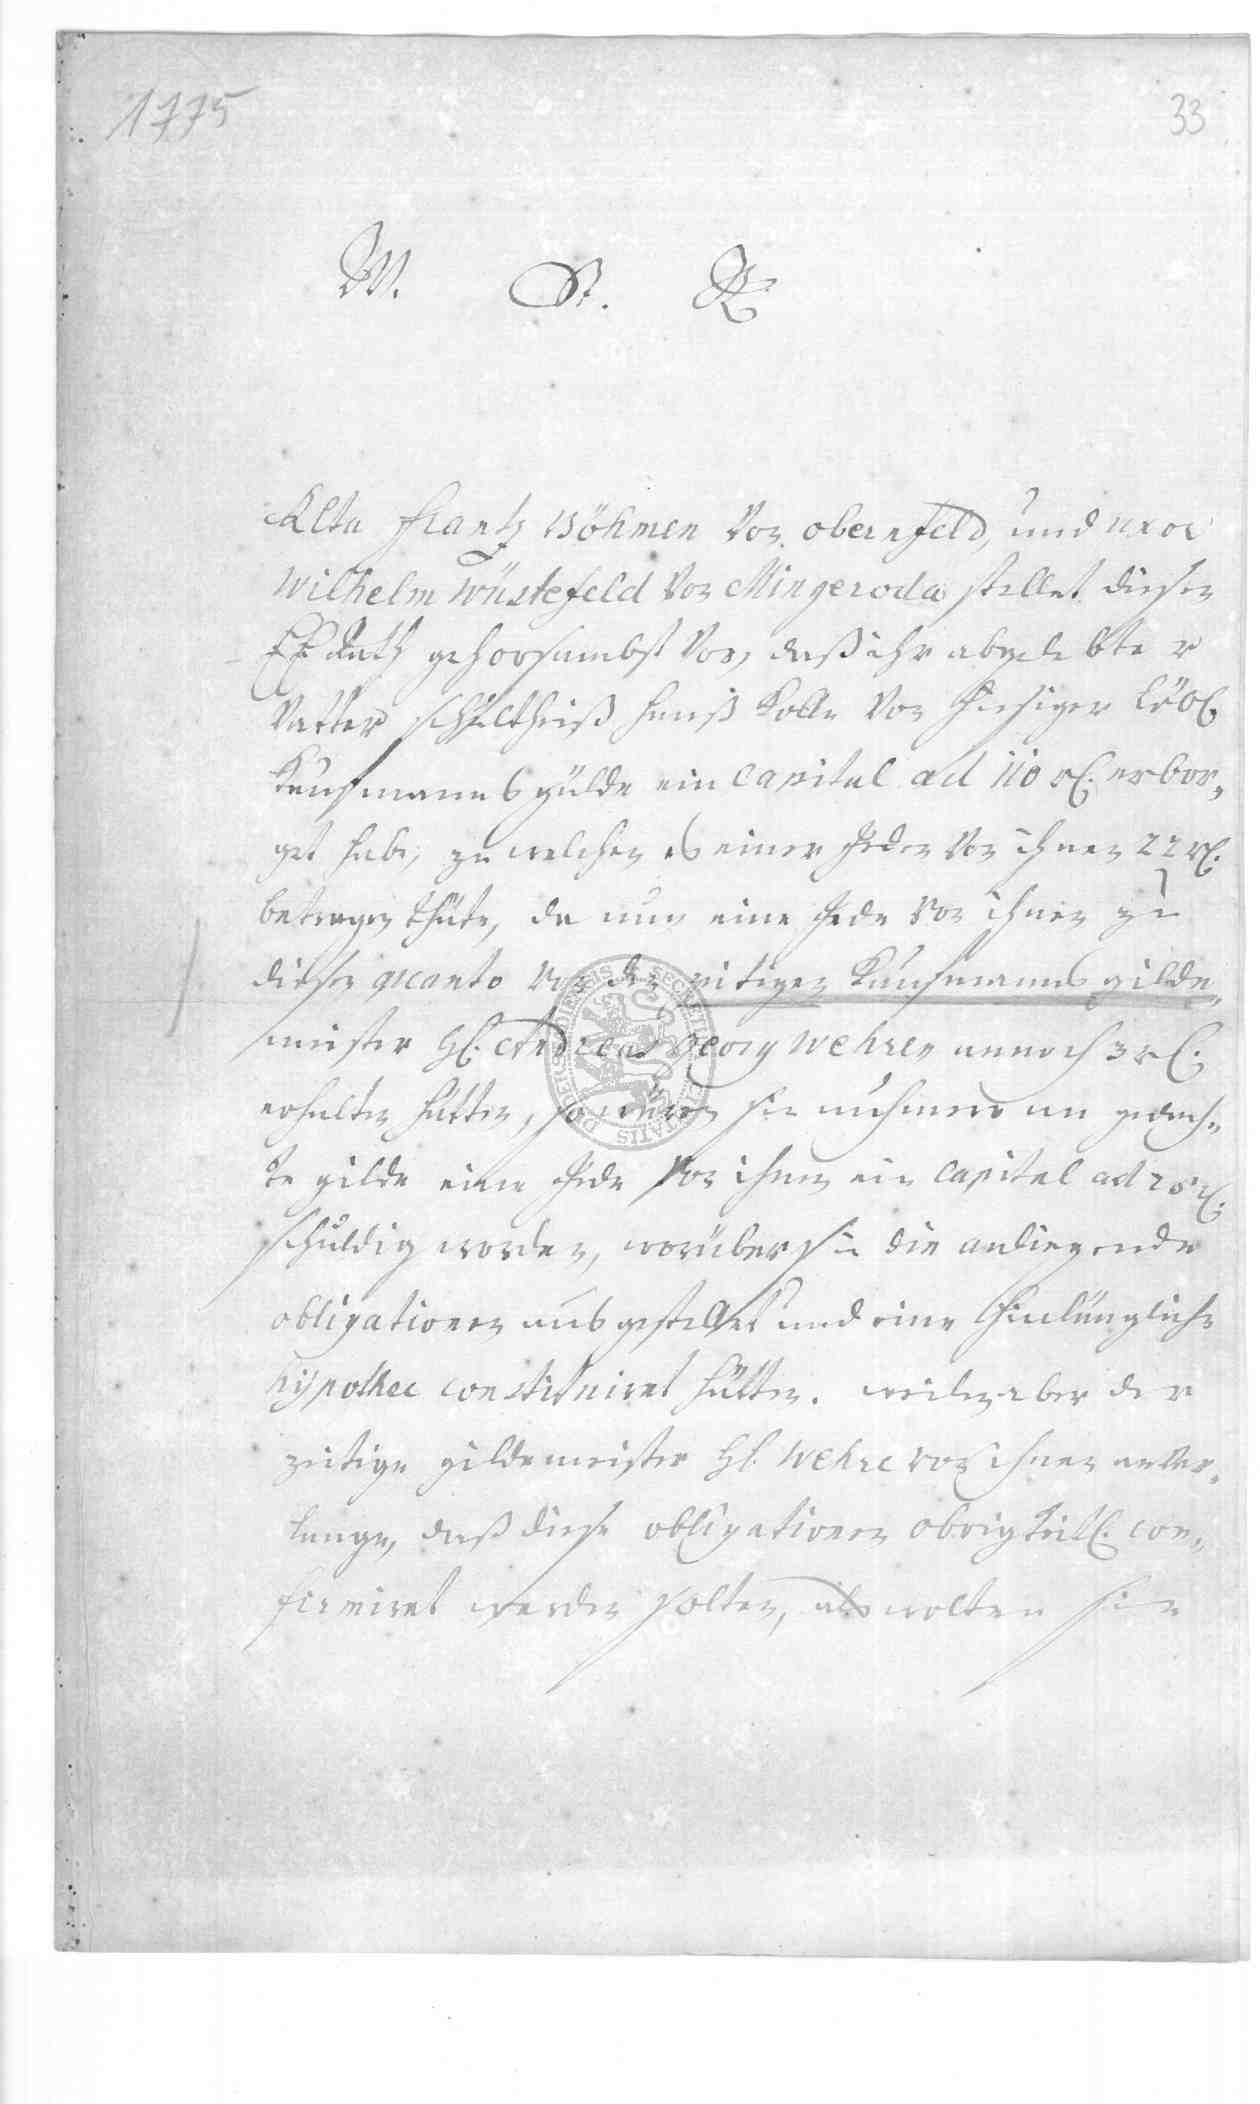 1775
33
W. St. R
Elta Frantz Böhmen von obernfeld, und uxor
Wilhelm Wüstefeld von Mingeroda stellet dieser
E E Rath gehorsambst vor, daß ihr abgelebter
Vatter schultheiß Hanß Kolle von hiesiger löbl.
Kaufmanns gülde ein Capital ad 110 rl. erbor„
get habe, zu welchen es einer Jeden von ihnen 22 rl.
betragen thäte, da nun eine Jede von ihnen zu
dieser quanto von den zeitigen Kaufmanns gilde„
meister Hl. Andreas Georg Wehren annoch 3 rl.
erhalten hätten, so wären sie nuhmero an gedach„
te gilde eine Jede von ihnen ein Capital ad 25 rl.
schuldig worden, worüber sie die anliegende
obligationen ausgestellet und eine hinlängliche
hypothec constituiret hätten. weilen aber der
zeitige gildemeister Hl. Wehre von ihnen ver„
lange, daß diese obligationen obrigkeitl. con„
firmiret werden solten, als wolten sie